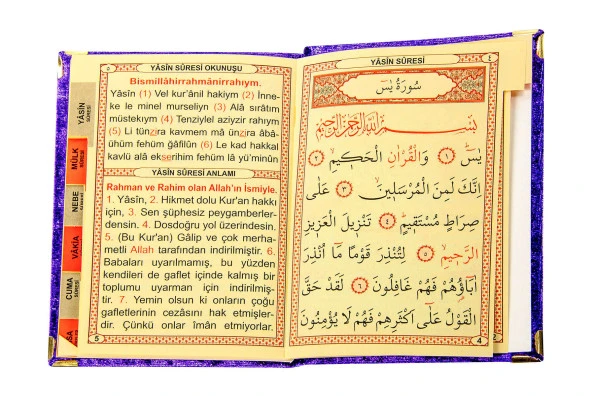 ٥
YÂSİN SÛRESİ OKUNUŞU
Bismillâhirrahmânirrahıym.
Yâsîn (1) Vel kur'ânil hakiym (2) İnne-
ke le minel murseliyn (3) Alâ sırâtım
müstekıym (4) Tenziylel aziyzir rahıym
(5) Li tünzira kavmem mâ ünzira âbâ-
ühüm fehüm ğâfilûn (6) Le kad hakkal
kavlü alâ ekserihim fehüm lâ yü'minûn
YÂSİN SÛRESİ ANLAMI
Rahman ve Rahim olan Allah'ın İsmiyle.
1. Yâsîn, 2. Hikmet dolu Kur'an hakkı
için, 3. Sen şüphesiz peygamberler-
densin. 4. Dosdoğru yol üzerindesin.
5. (Bu Kur'an) Gâlip ve çok merha-
metli Allah tarafından indirilmiştir. 6.
Babaları uyarılmamış, bu yüzden
kendileri de gaflet içinde kalmış bir
toplumu uyarman için indirilmiş-
tir. 7. Yemin olsun ki onların çoğu
gafletlerinin cezâsını hak etmişler-
dir. Çünkü onlar îmân etmiyorlar.
5
YÂSİN
SÛRESİ
MÜLK
SÛRESİ
NEBE
SÛRESİ
VÂKIA
SÛRESİ
CUMA
SÛRESİ
YÂSİN SÛRESİ
٤
سُورَةُ يٰسٓ
بِسْمِ اللّٰهِ الرَّحْمٰنِ الرَّحِيمِ
يٰسٓ ﴿١﴾ وَالْقُرْاٰنِ الْحَكِيمِ ﴿٢﴾
اِنَّكَ لَمِنَ الْمُرْسَلِينَ ﴿٣﴾ عَلٰى
صِرَاطٍ مُسْتَقِيمٍ ﴿٤﴾ تَنْزِيلَ الْعَزِيزِ
الرَّحِيمِ ﴿٥﴾ لِتُنْذِرَ قَوْمًا مَٓا اُنْذِرَ
اٰبَٓاؤُهُمْ فَهُمْ غَافِلُونَ ﴿٦﴾ لَقَدْ حَقَّ
الْقَوْلُ عَلٰٓى اَكْثَرِهِمْ فَهُمْ لَا يُؤْمِنُونَ
4